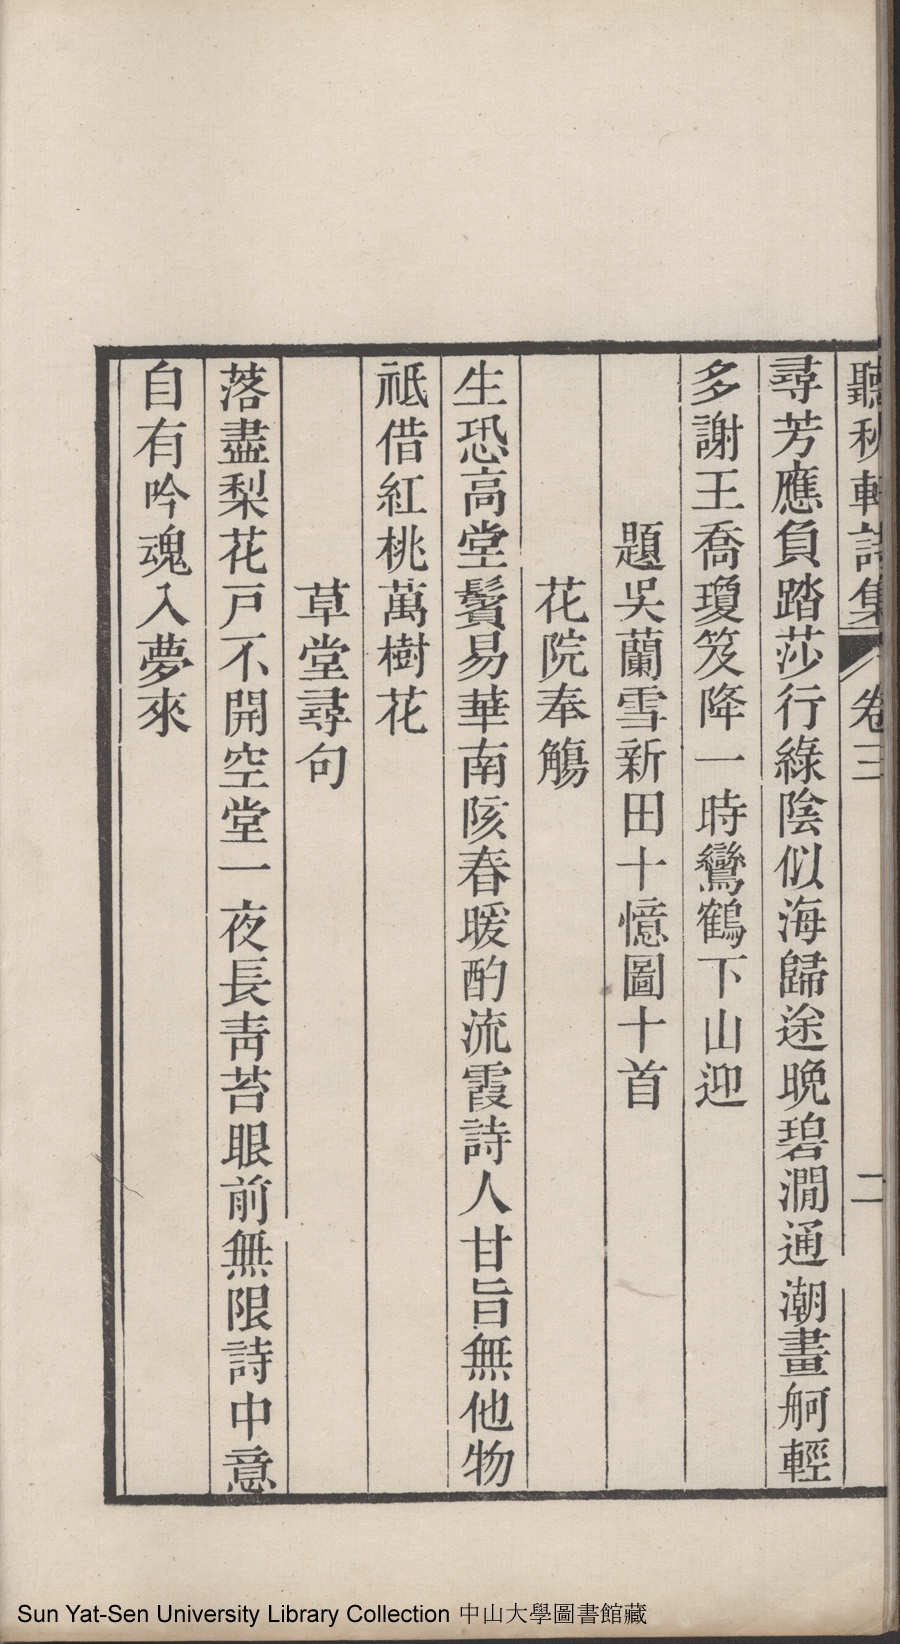 聽秋軒詩集 卷三 二
尋芳應負踏莎行綠陰似海歸途晚碧澗通潮畫舸輕
多謝王喬瓊笈降一時鸞鶴下山迎
題吳蘭雪新田十憶圖十首
花院奉觴
生恐高堂鬢易華南陔春暖酌流霞詩人甘旨無他物
祗借紅桃萬樹花
草堂尋句
落盡梨花戸不開空堂一夜長靑苔眼前無限詩中意
自有吟魂入夢來
Sun Yat-Sen University Library Collection 中山大學圖書館藏